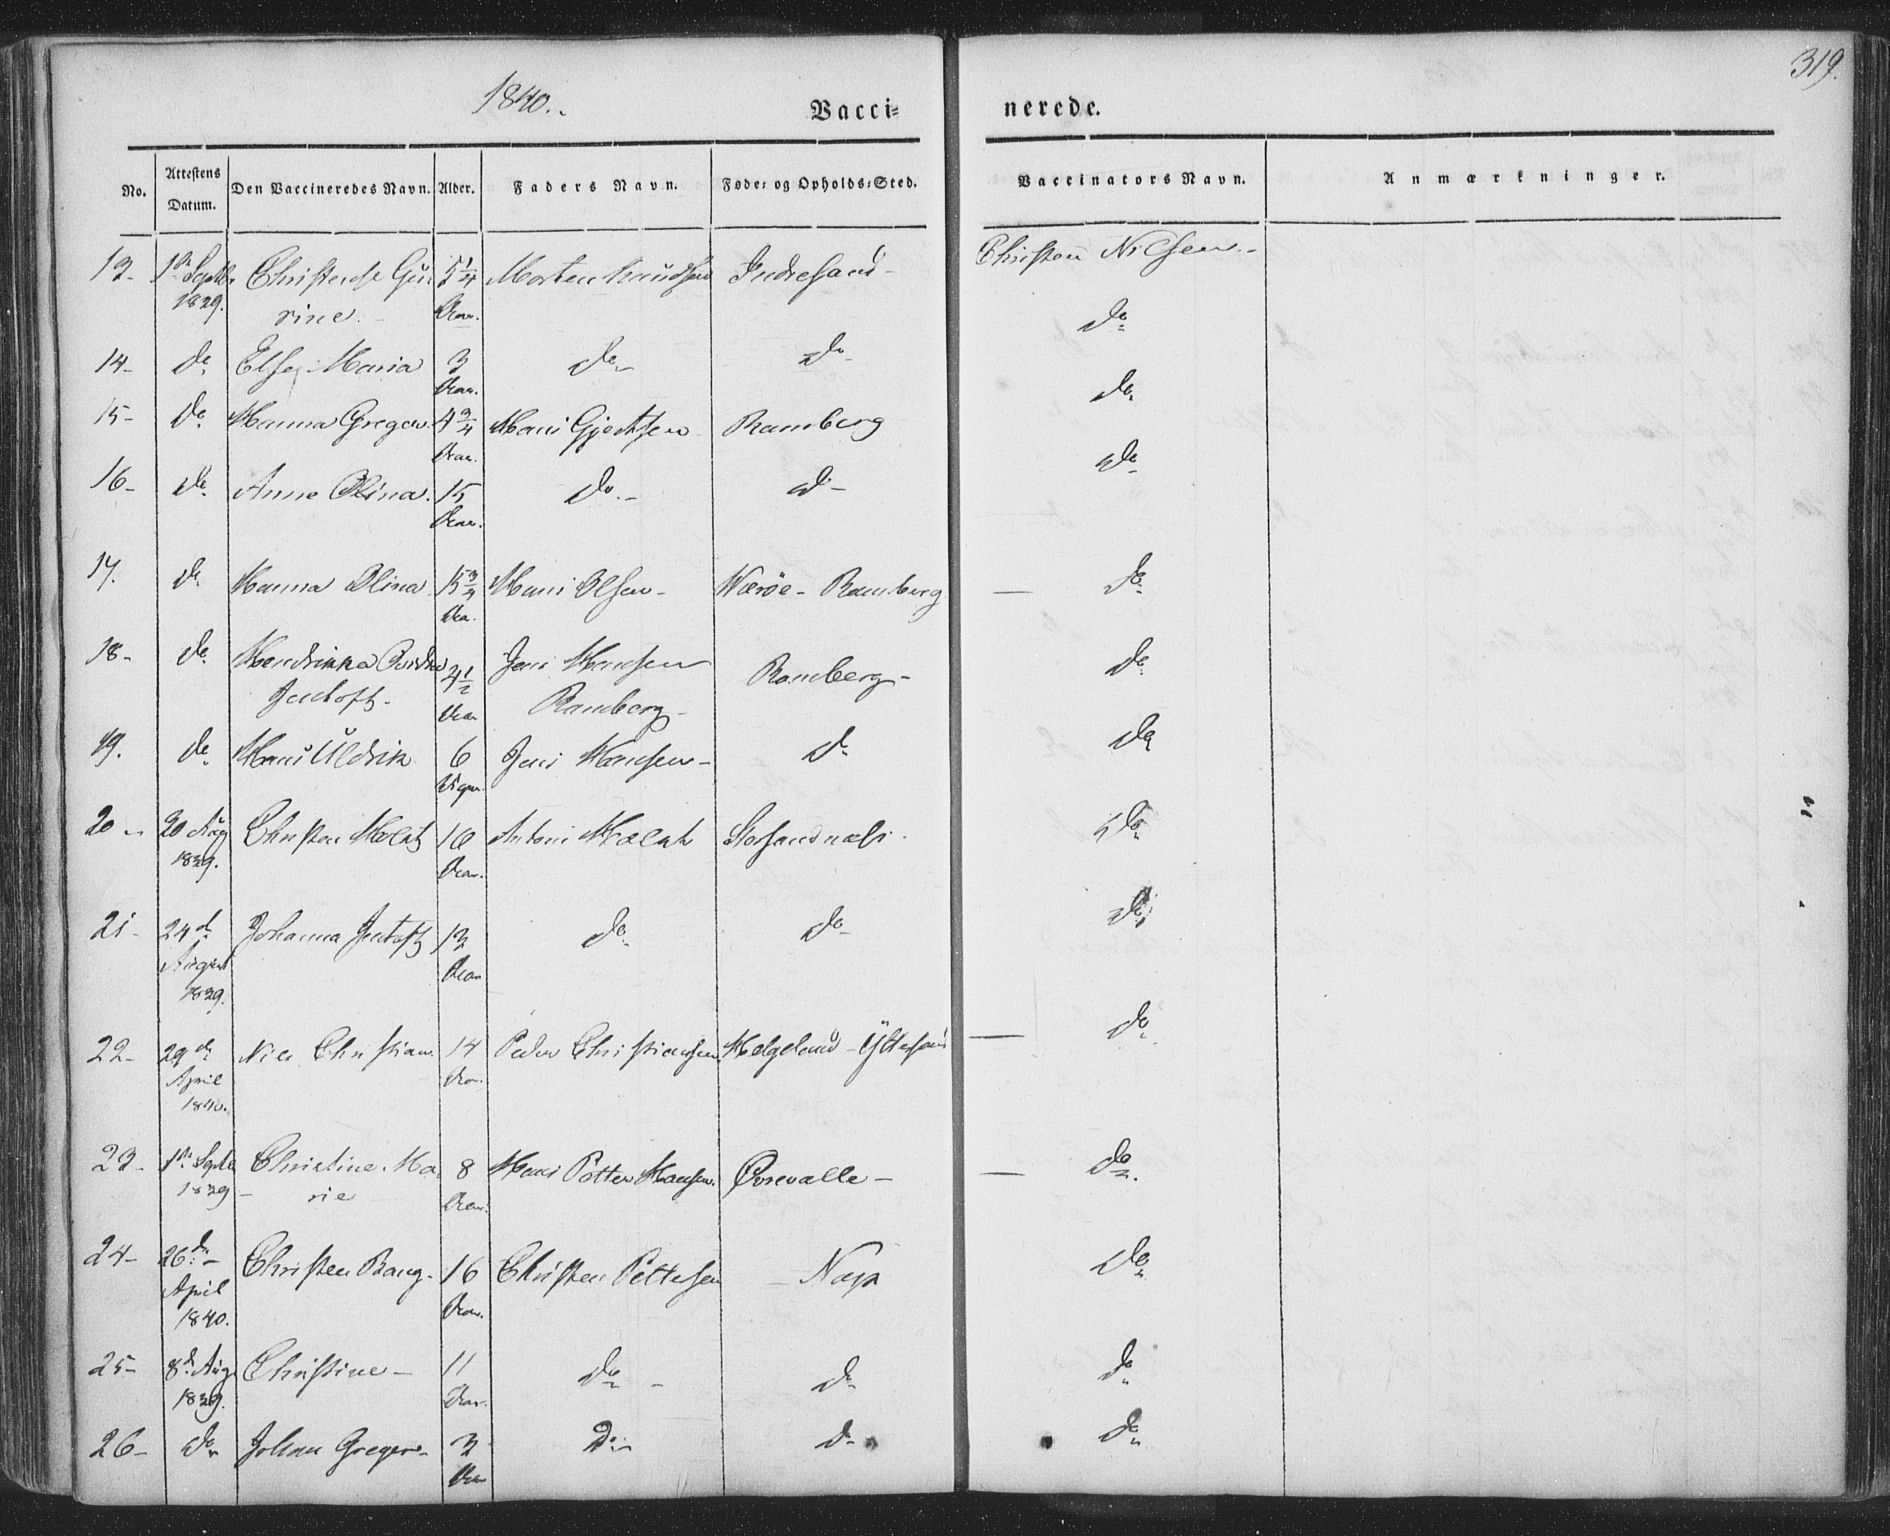 1840.
319.
Vacci=
nerede.
No. Attestens Datum. Den Vaccineredes Navn. Alder. Faders Navn. Føde= og Opholds=Sted. Vaccinators Navn. Anmærkninger.
13- 1ste Septbr 1839. Christense Gu rine. 5 1/4 Aar. Morten Knudsen Indresand- Christen Nilsen.-
do
14- do Else Maria 3 Aar. do do do
15- do Hanna Greger. 4 3/4 Aar. Hans Gjertsen Ramberg do
16- do Anne Olina. 15 Aar. do.- do-
17. do Hanna Olina 15 3/4 Aar. Hans Olsen- Værøe- Ramberg - do
18- do Hendrikka Jentoft- 4 1/2 Aar Jens Hansen Ramberg- Ramberg- do
19. do Hans Uldrik 6 Uger. Jens Hansen- do do
20- 20 Aug 1839. Christen Holst 10 Aar. Antoni Holst Storsandnæs. do
21- 24d August 1839. Johanna Jentoft 13 Aar do do do
22- 29d April 1840. Nils Christian. 14 Aar. Peder Christiansen Helgeland-Yttesand - do
23- 1ste Septb 1839- Christine Ma rie 8 Aar. Hans Petter Hansen. Øvrevalle- - do.
24- 26de April 1840. Christen Bang- 16 Aar. Christen Pettersen - Nap do
25- 8d Aug 1839. Christine- 11 Aar. do - do do
26- do Johan Greger- 3 Aar Do do do